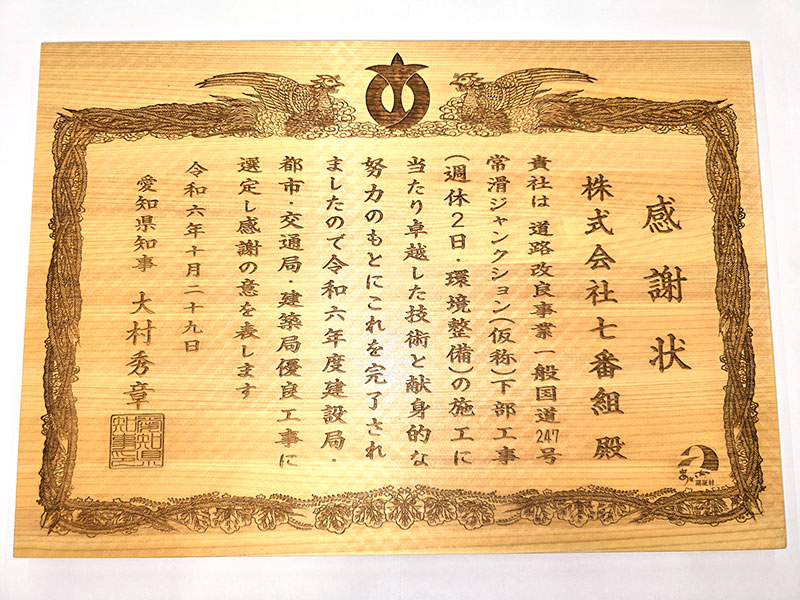 感謝状
株式会社七番組 殿
貴社は 道路改良事業 一般国道247号
常滑ジャンクション(仮称)下部工事
(週休2日・環境整備)の施工に
当たり卓越した技術と献身的な
努力のもとにこれを完了され
ましたので令和六年度建設局・
都市・交通局・建築局優良工事に
選定し感謝の意を表します
令和六年十月二十九日
愛知県知事 大村秀章
愛知県
知事之印
認証材